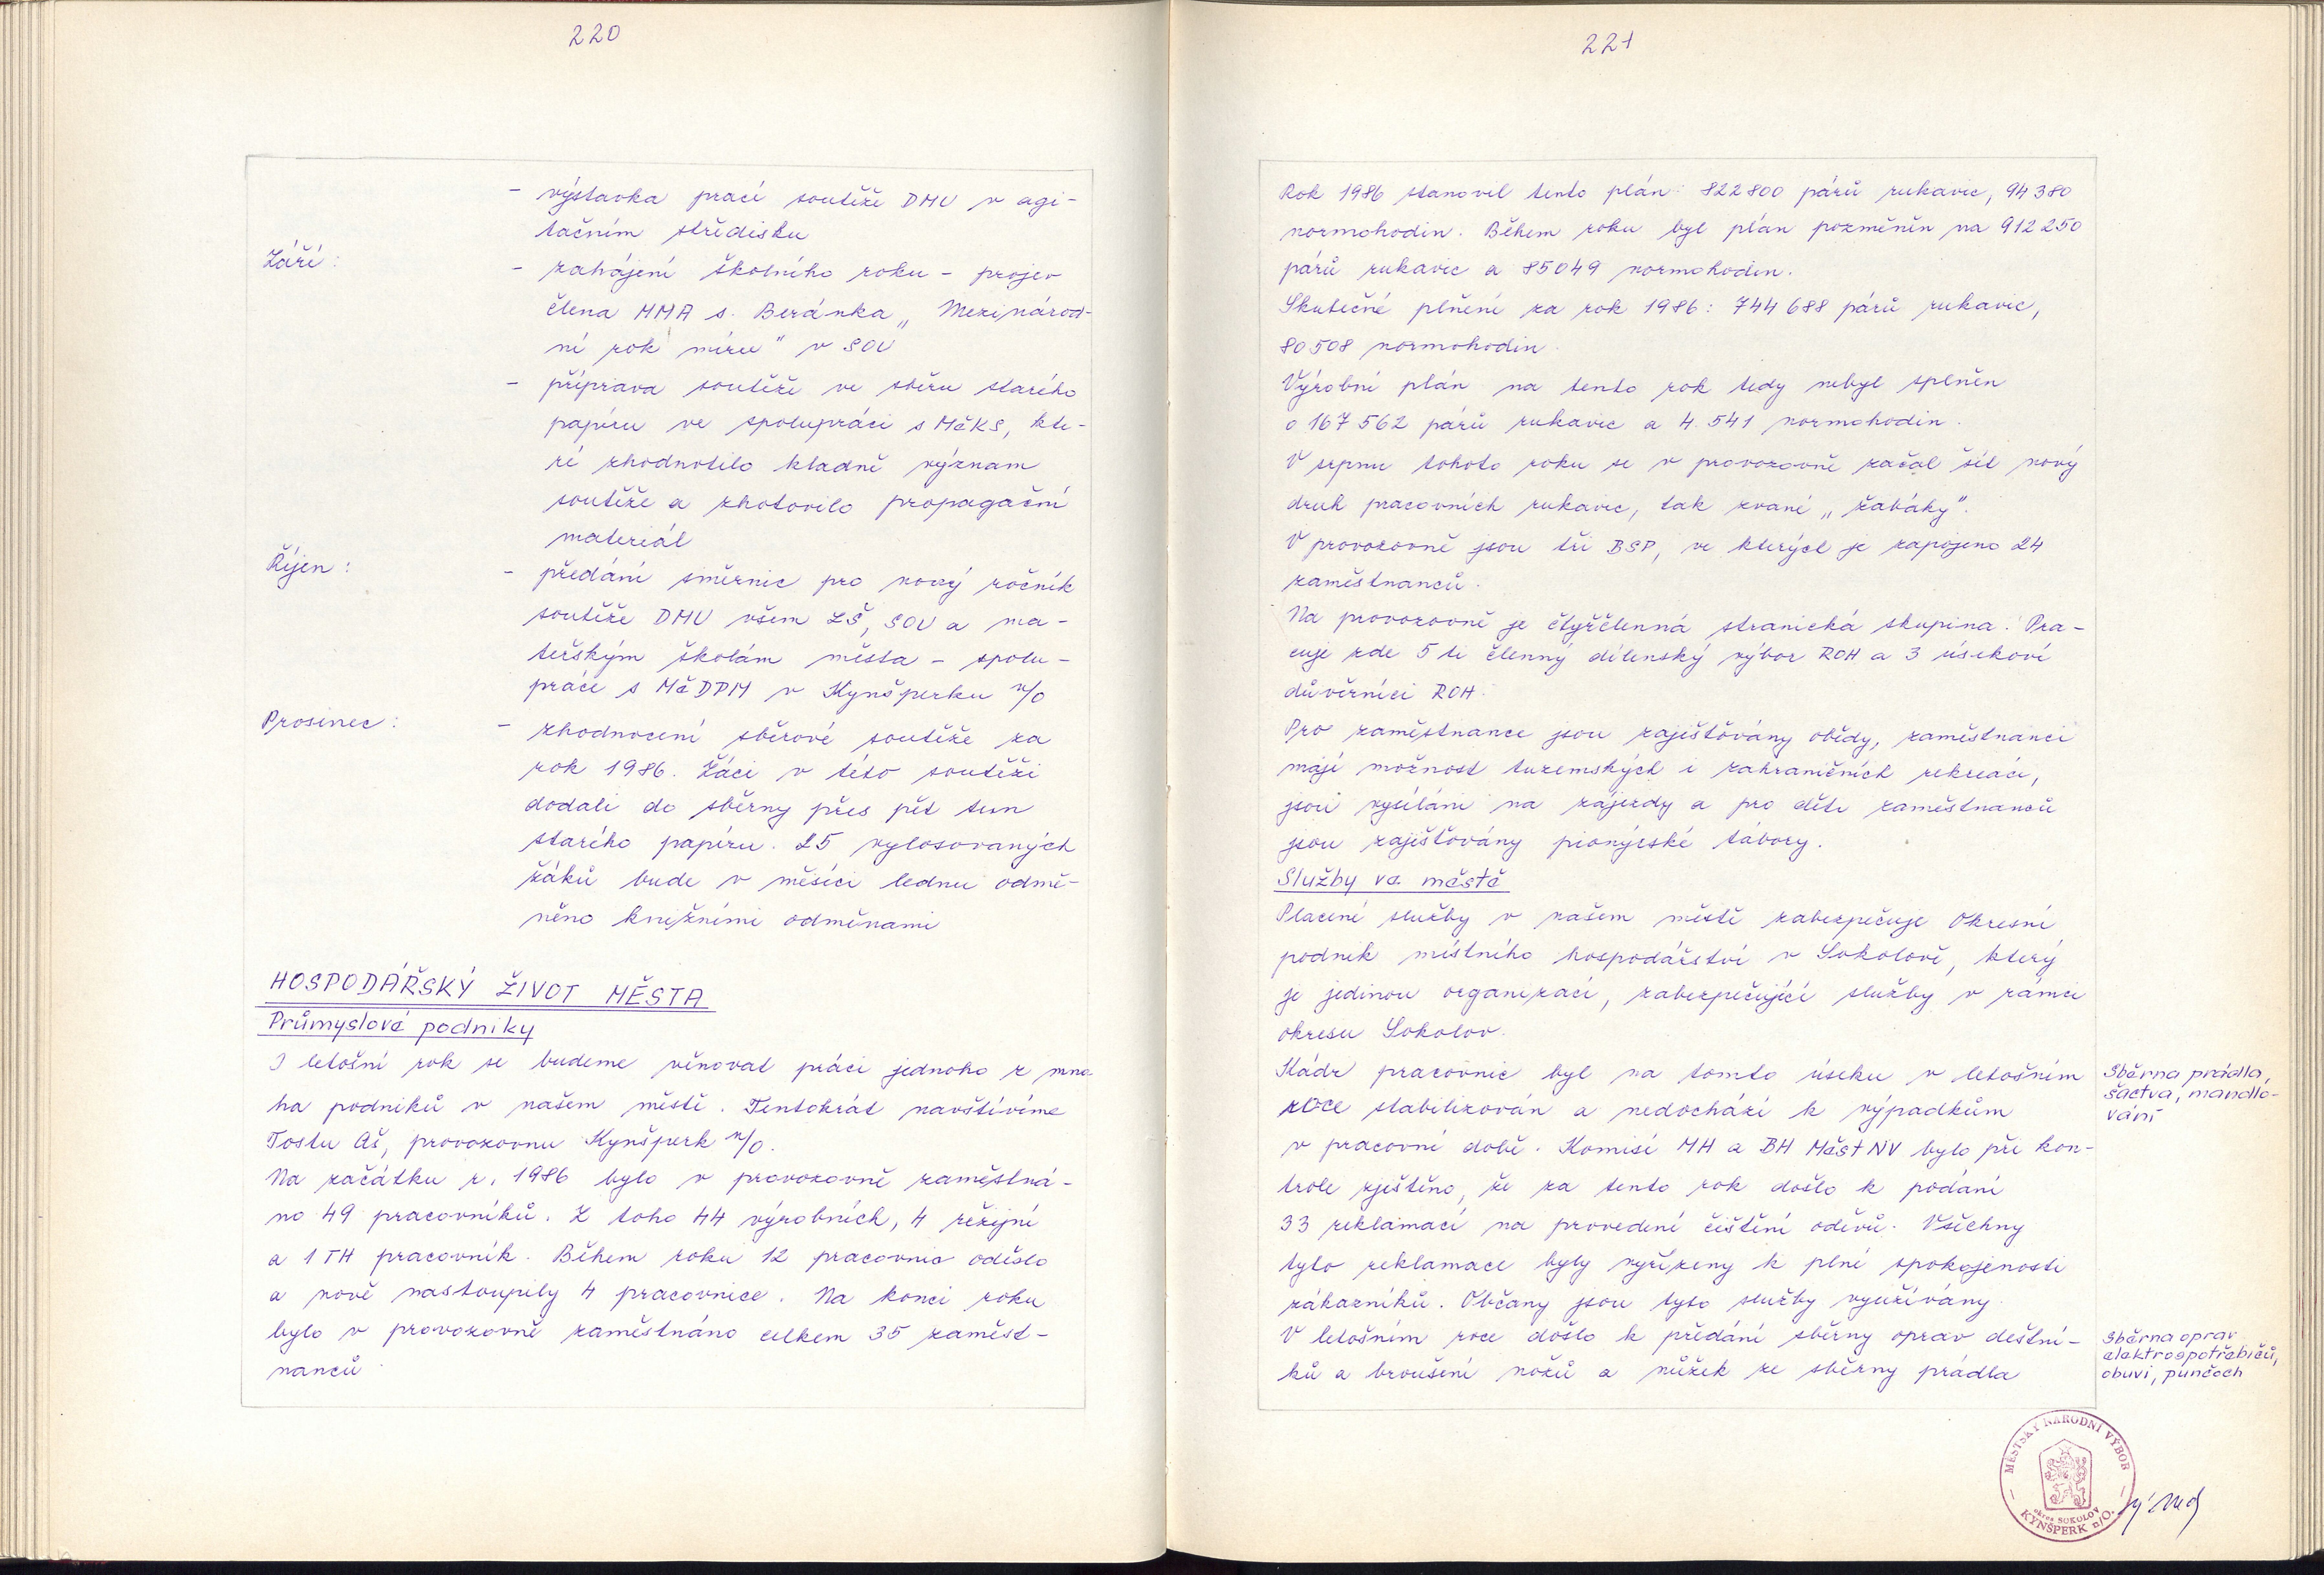 220
- výstavka prací soutěže DMU v agi-
tačním středisku
Září:
- zahájení školního roku - projev
člena MMA s. Beránka „Mezinárod-
ní rok míru" v SOU
- příprava soutěže ve sběru starého
papíru ve spolupráci s MěKS, kte-
ré zhodnotilo kladně význam
soutěže a zhotovilo propagační
materiál
Říjen:
- předání směrnic pro nový ročník
soutěže DMU všem ZŠ, SOU a ma-
teřským školám města - spolu-
práce s MěDPM v Kynšperku n/O
Prosinec:
- zhodnocení sběrové soutěže za
rok 1986. Žáci v této soutěži
dodali do sběrny přes pět tun
starého papíru. 25 vylosovaných
žáků bude v měsíci lednu odmě-
něno knižními odměnami
HOSPODÁŘSKÝ ŽIVOT MĚSTA
Průmyslové podniky
I letošní rok se budeme věnovat práci jednoho z mno-
ha podniků v našem městě. Tentokrát navštívíme
Tostu Aš, provozovnu Kynšperk n/O.
Na začátku r. 1986 bylo v provozovně zaměstná-
no 49 pracovníků. Z toho 44 výrobních, 4 režijní
a 1 TH pracovník. Během roku 12 pracovnic odešlo
a nově nastoupily 4 pracovnice. Na konci roku
bylo v provozovně zaměstnáno celkem 35 zaměst-
nanců.
221
Rok 1986 stanovil tento plán: 822 800 párů rukavic, 94 380
normohodin. Během roku byl plán pozměněn na 912 250
párů rukavic a 85049 normohodin.
Skutečné plnění za rok 1986: 744 688 párů rukavic,
80 508 normohodin.
Výrobní plán na tento rok tedy nebyl splněn
o 167 562 párů rukavic a 4.541 normohodin.
V srpnu tohoto roku se v provozovně začal šít nový
druh pracovních rukavic, tak zvané „žabáky".
V provozovně jsou tři BSP, ve kterých je zapojeno 24
zaměstnanců.
Na provozovně je čtyřčlenná stranická skupina. Pra-
cuje zde 5 ti členný dílenský výbor ROH a 3 úsekoví
důvěrníci ROH.
Pro zaměstnance jsou zajišťovány obědy, zaměstnanci
mají možnost tuzemských i zahraničních rekreací,
jsou vysíláni na zájezdy a pro děti zaměstnanců
jsou zajišťovány pionýrské tábory.
Služby ve městě
Placené služby v našem městě zabezpečuje Okresní
podnik místního hospodářství v Sokolově, který
je jedinou organizací, zabezpečující služby v rámci
okresu Sokolov.
Kádr pracovnic byl na tomto úseku v letošním
roce stabilizován a nedochází k výpadkům
v pracovní době. Komisí MH a BH MěstNV bylo při kon-
trole zjištěno, že za tento rok došlo k podání
33 reklamací na provedení čištění oděvů. Všechny
tyto reklamace byly vyřízeny k plné spokojenosti
zákazníků. Občany jsou tyto služby využívány.
V letošním roce došlo k předání sběrny oprav deštní-
ků a broušení nožů a nůžek ze sběrny prádla
Sběrna prádla,
šactva, mandlo-
vání
Sběrna oprav
elektrospotřebičů,
obuvi, punčoch
MĚSTSKÝ NÁRODNÍ VÝBOR
okres SOKOLOV
KYNŠPERK n/O.